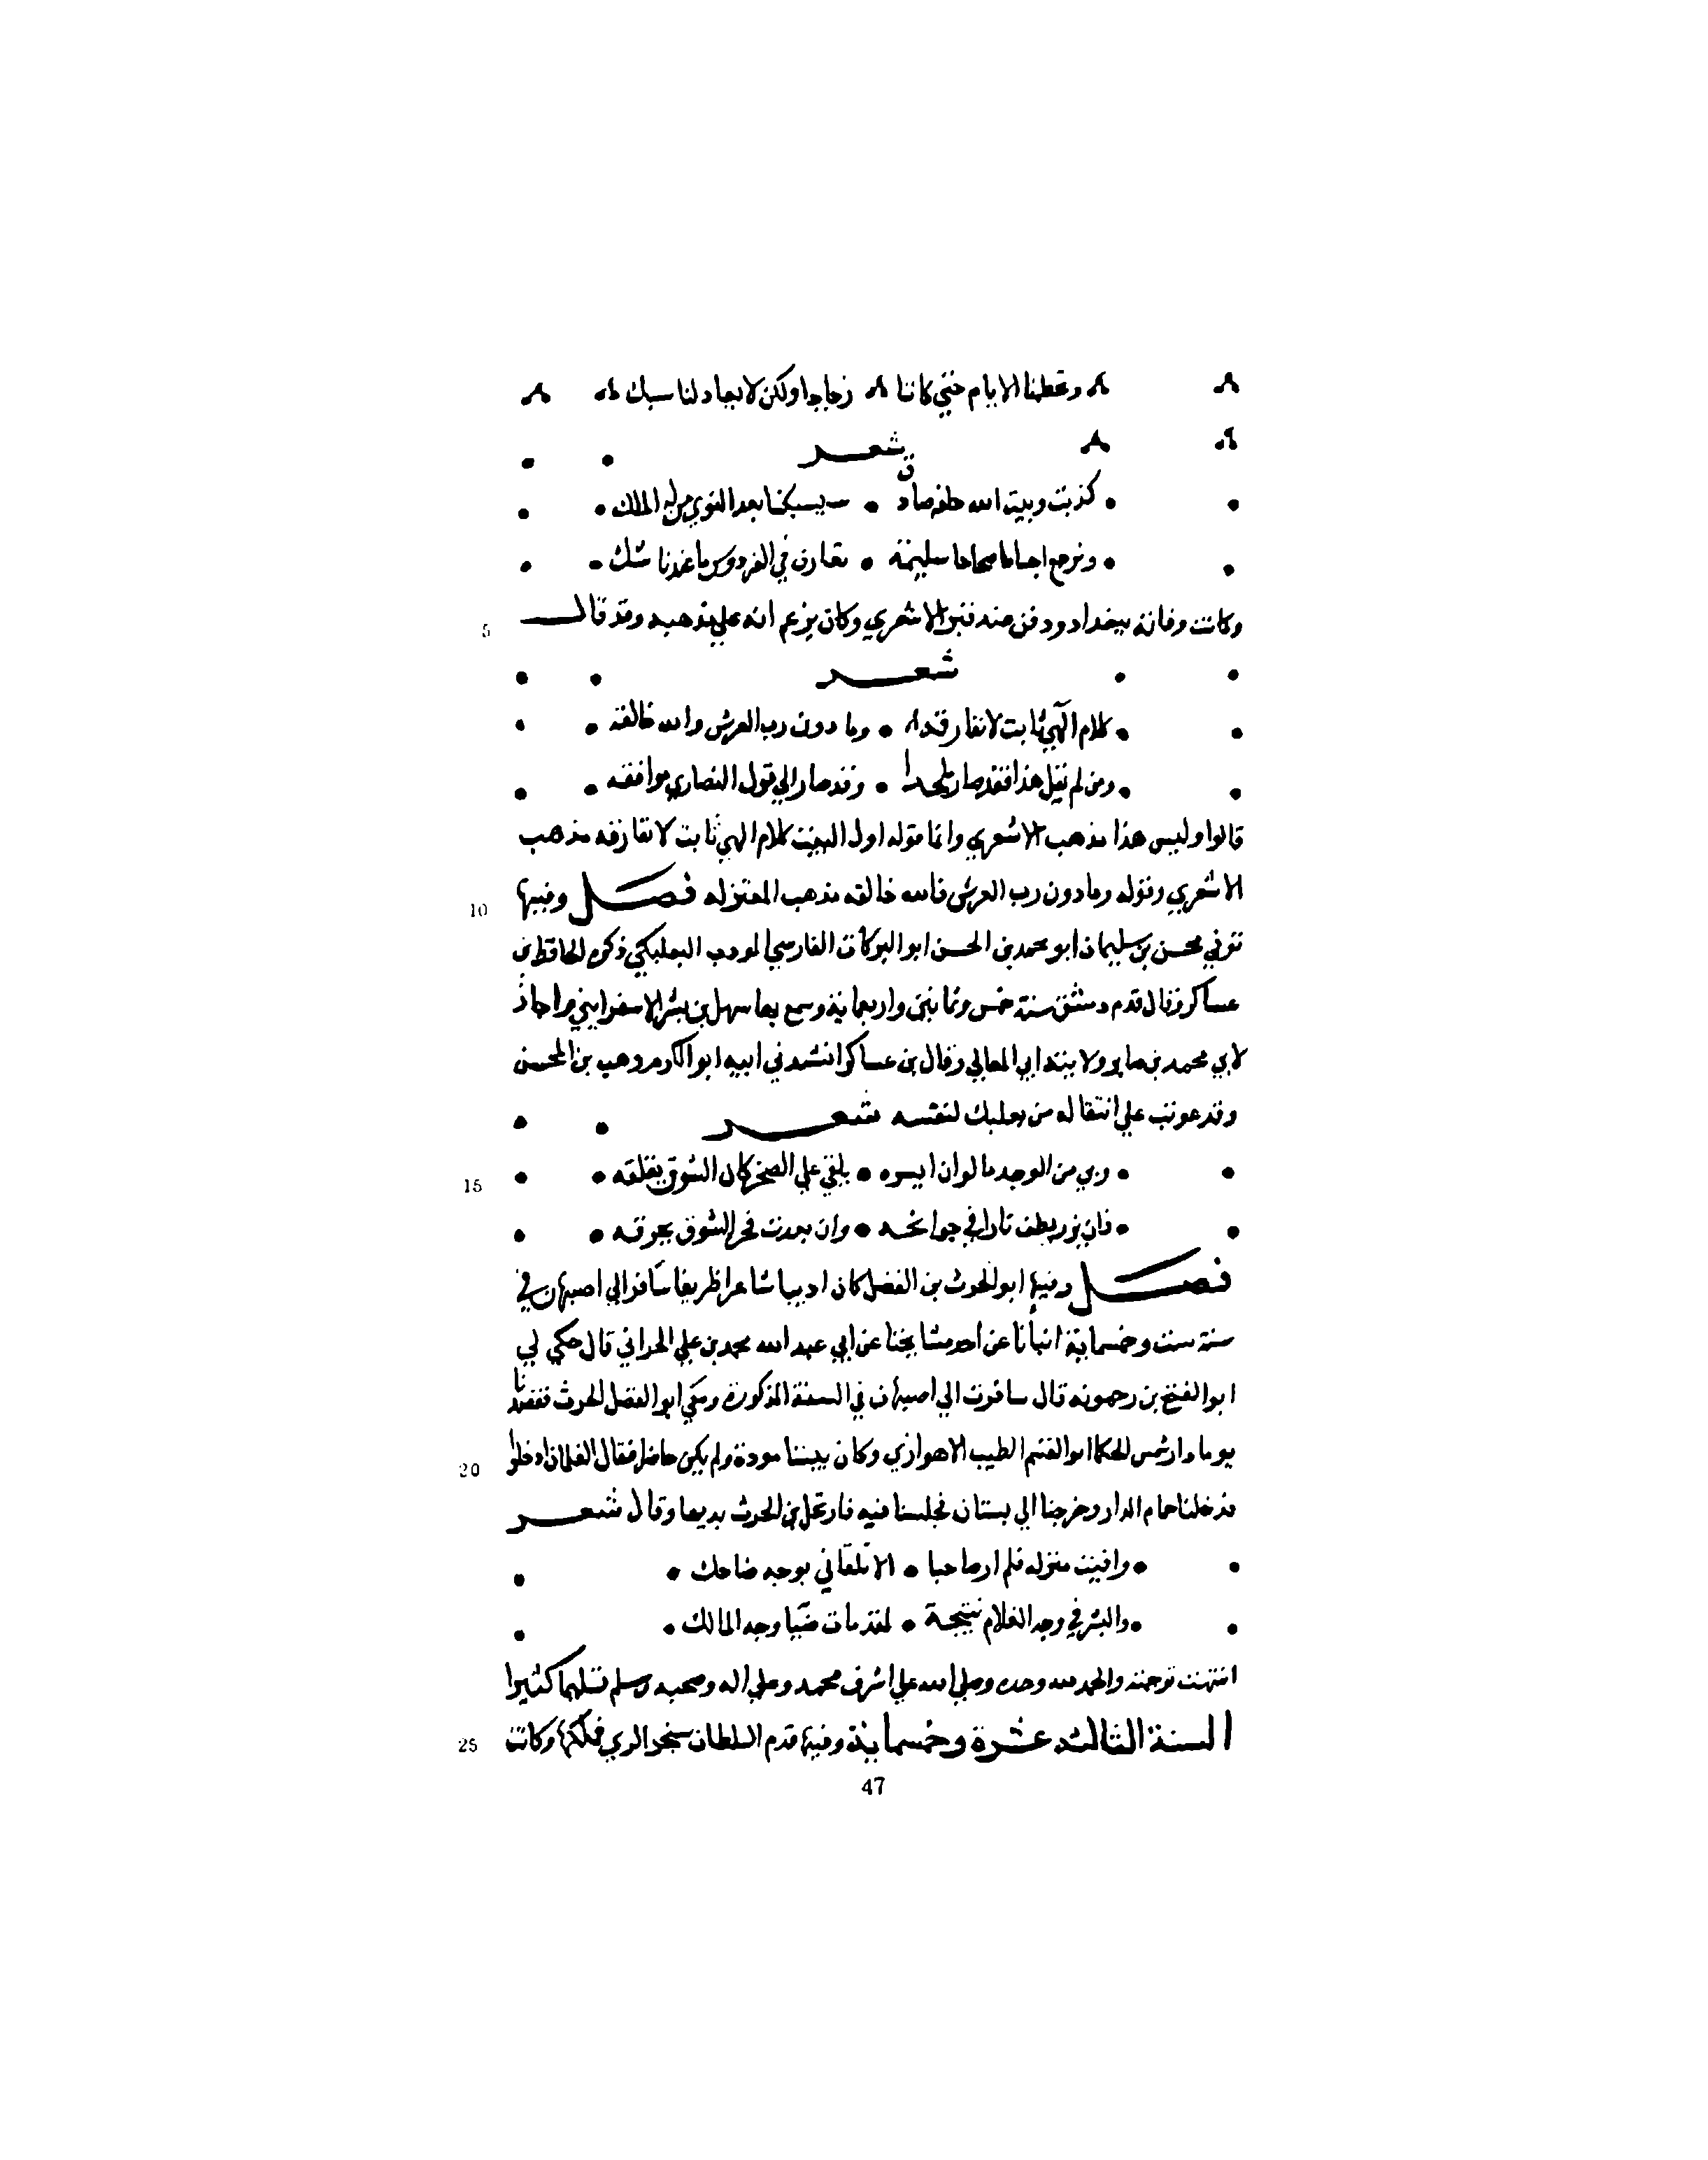 وتحطمنا الايام حتي كاننا زجاجا ولكن لا يعاد لنا سبك
شعر
كذبت وبيت الله حلفه صادق سيسبكنا بعد النوي من له الملك
ونرجع اجساما صحاحا سليمة تعارف في الفردوس ما عندنا شك
وكانت وفاته ببغداد ودفن عند قبر الاشعري وكان يزعم انه علي مذهبه وقد قال
5
شعر
كلام الهي ثابت لا تفارقه وما دون رب العرش والله خالقه
ومن لم يقل هذا فقد صار ملحدا وقد صار الي قول النصاري موافقه
قالوا وليس هذا مذهب الاشعري وانما قوله اول البيت كلام الهي ثابت لا تفارقه مذهب
الاشعري وقوله وما دون رب العرش فالله خالقه مذهب المعتزله فصل وفيها
10
توفي محسن بن سليمان ابو محمد بن الحسن ابو البركات الفارسي المودب البعلبكي ذكره الحافظ بن
عساكر وقال قدم دمشق سنة خمس وثمانين واربعماية وسمع بها سهل بن بشر الاسفرايني واجاز
لابي محمد بن صابر ولابنته ابي المعالي وقال بن عساكر انشدني ابيه ابو المكارم وهب بن المحسن
وقد عوتب علي انتقاله من بعلبك لنفسه شعر
وبي من الوجد ما لو ان ايسره يلقي علي الصخر كان الشوق يفلقه
15
فان يزر يطف نارا في جوانحه وان بعدت فحر الشوق يحرقه
فصل وفيها ابو الحرث بن الفضل كان اديبا شاعرا ظريفا سافر الي اصبهان في
سنة ست وخمسماية انبانا عن احد مشايخنا عن ابي عبد الله محمد بن علي الحراني قال حكي لي
ابو الفتح بن رحمونه قال سافرت الي اصبهان في السنة المذكورة ومعي ابو الفضل الحرث فقصدنا
يوما دار شمس الحكما ابو القسم الطيب الاهوازي وكان بيننا مودة ولم يكن حاضرا فقال الغلمان ادخلوا
20
فدخلنا حمام الدار وخرجنا الي بستان فجلسنا فيه فارتجل بن الحرث بديها وقال شعر
وافيت منزله فلم ار صاحبا الا تلقاني بوجه ضاحك
والبشر في وجه الغلام نتيجة لمقدمات ضيا وجه المالك
انتهت ترجمته والحمد لله وحده وصلي الله علي اشرف محمد وعلي اله وصحبه وسلم تسليما كثيرا
السنة الثالثه عشرة وخمسماية وفيها قدم السلطان سنجر الري فملكها وكانت
25
47